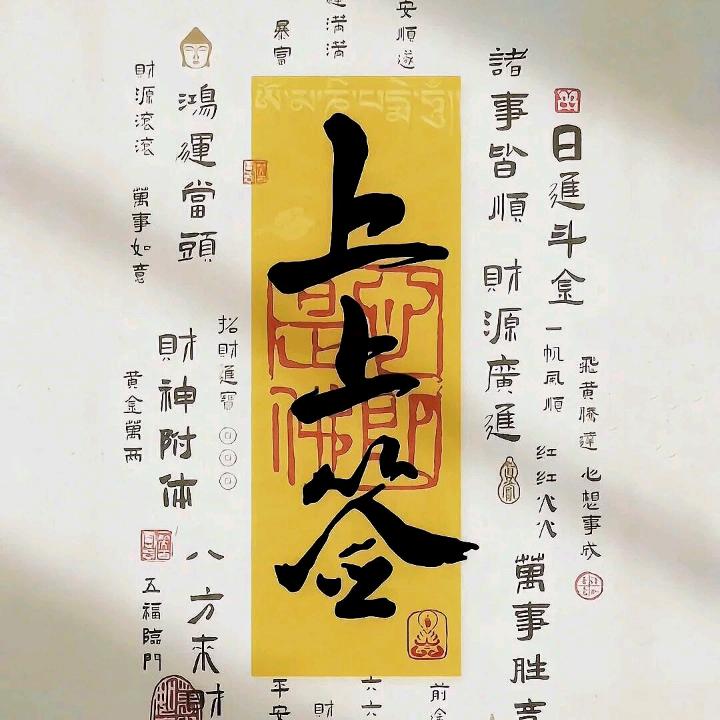 上上签
暴富
满满
安順遂
諸事皆順
財源廣進
日進斗金
一帆風順
飛黃騰達
心想事成
紅紅火火
萬事胜意
鴻運當頭
財源滾滾
萬事如意
招財進寶
財神附体
黄金萬两
八方来財
五福臨門
平安
財
六六
前途